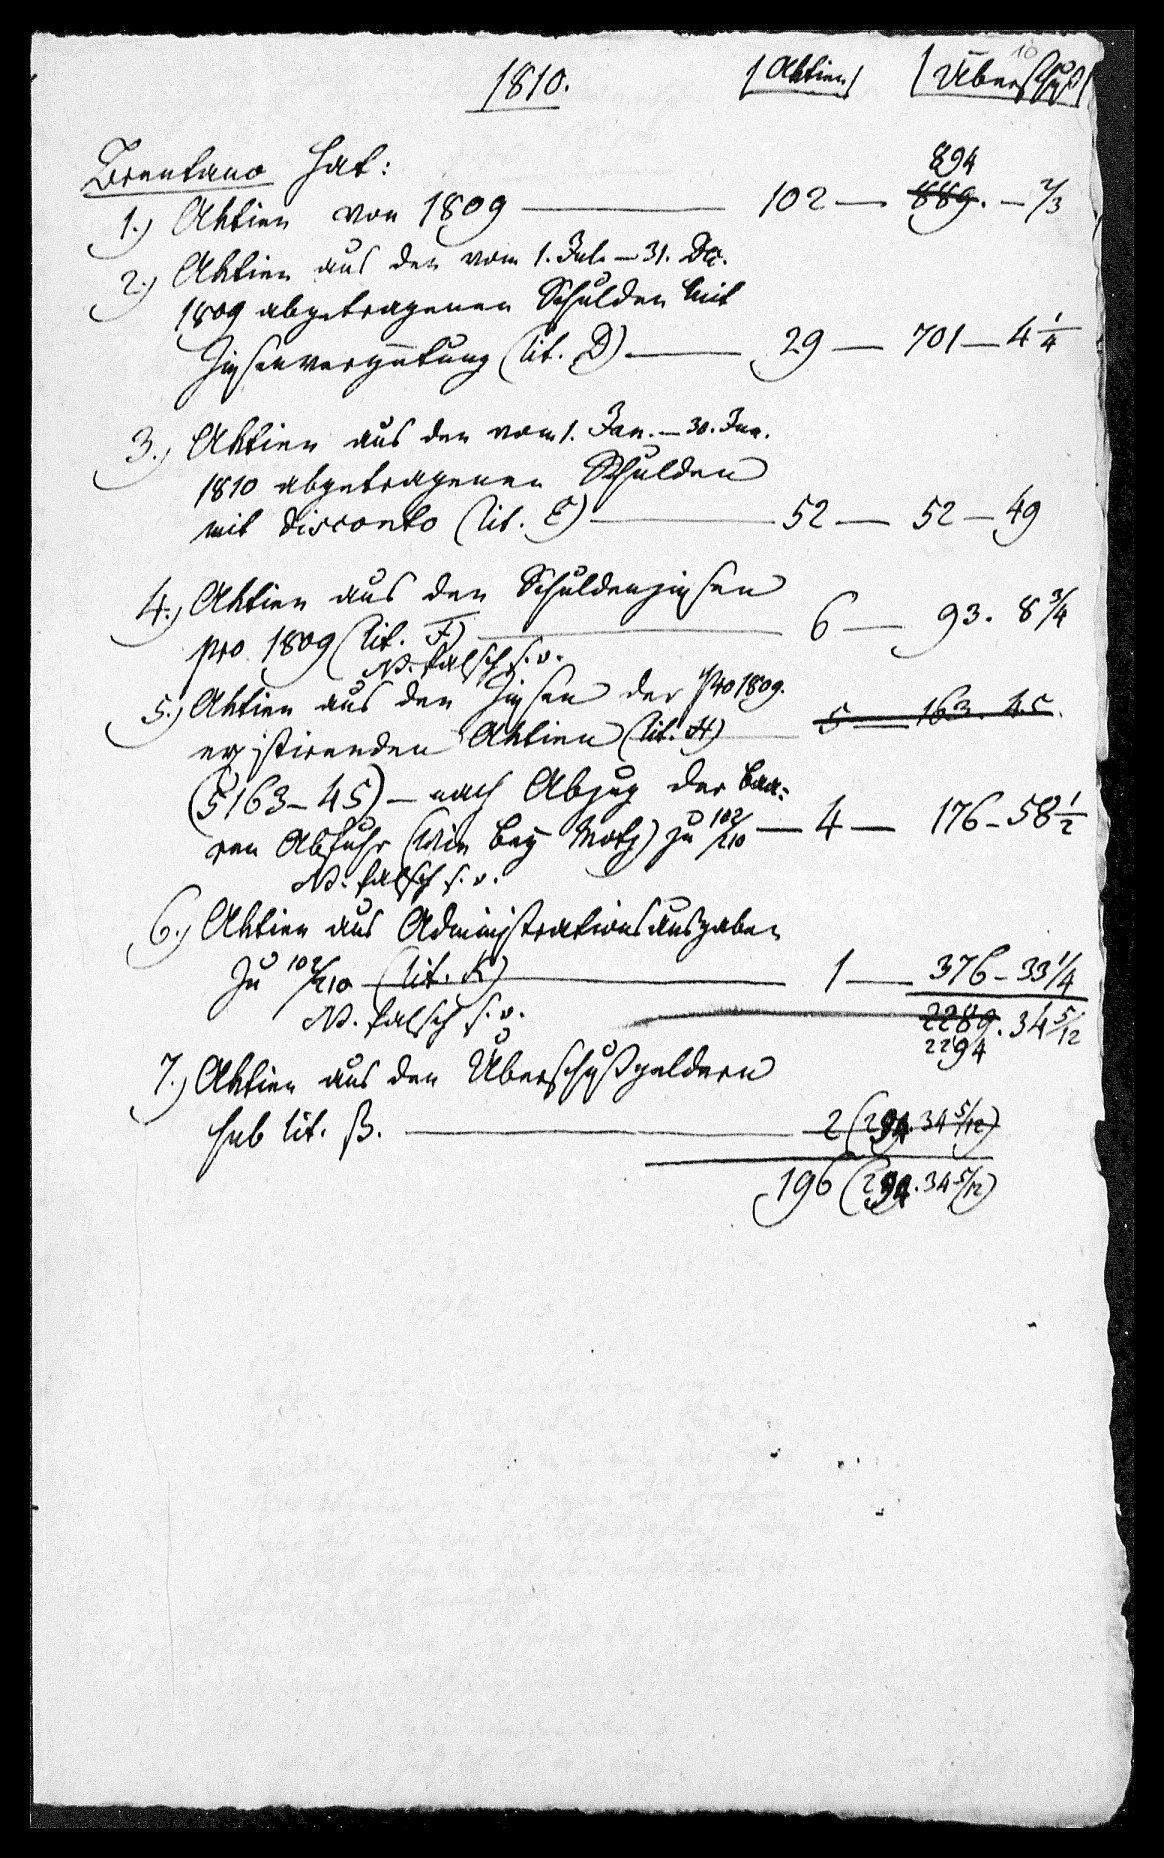 10
1810. | Aktien | | Überschuß |
Brentano hat: 894
1.) Aktien von 1809 — 102 — 889. — 2/3
2.) Aktien aus den vom 1. Jul. — 31. Dec.
1809 abgetragenen Schulden mit
Zinsenvergütung (lit. D) — 29 — 701 — 4 1/4
3.) Aktien aus den vom 1. Jan. — 30. Jun.
1810 abgetragenen Schulden
mit Disconto (lit. E) — 52 — 52 — 49
4.) Aktien aus den Schuldenzinsen
pro 1809 (lit. F) — 6 — 93. 8 3/4
NB. falsch s. v.
5.) Aktien aus den Zinsen der pro 1809.
existirenden Aktien (lit. H) — 5 — 163. 45.
(5 163 — 45) — nach Abzug der baa=
ren Abfuhr (wie bey Motz) zu 102/210 — 4 — 176 — 58 1/2
NB. falsch s. v.
6.) Aktien aus Administrationsausgaben
zu 102/210 (lit. K) — 1 — 376 — 33 1/4
NB. falsch s. v. 2289. 34 5/12
2294
7.) Aktien aus den Überschußgeldern
sub lit. B. — 2 (294. 34 5/12)
196 (294. 34 5/12)